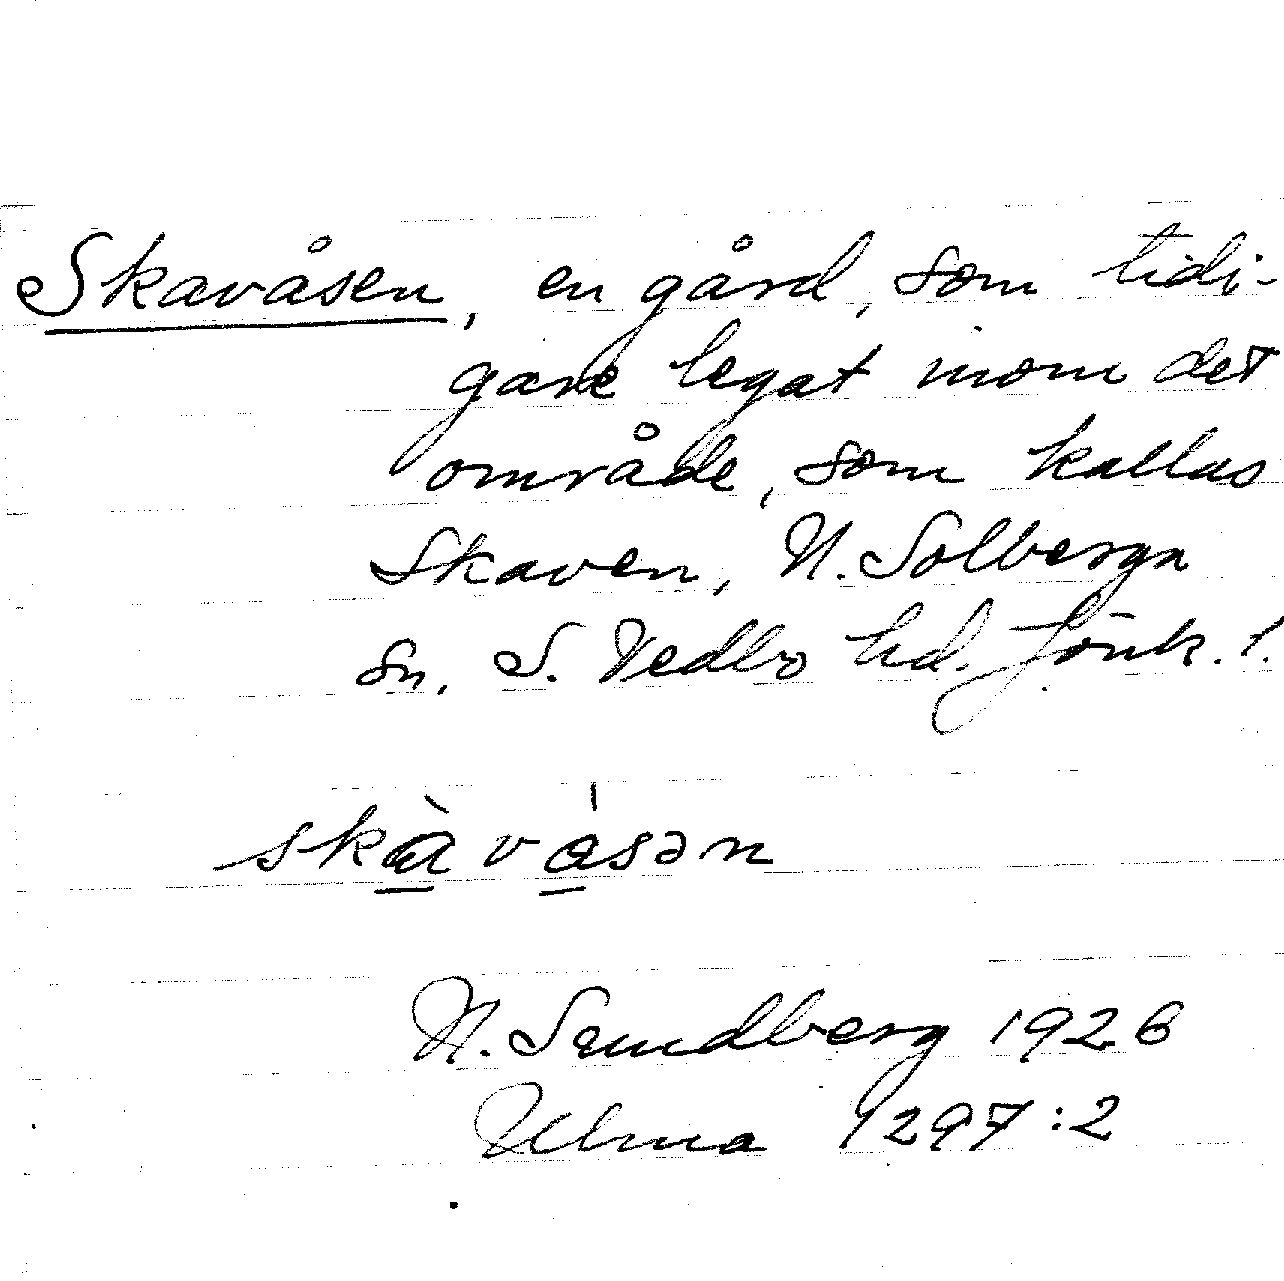 Skavåsen, en gård, som tidi-
gare legat inom det
område, som kallas
Skaven, N. Solberga
sn, S. Vedbo hd. Jönk. l.
skàvásən
N. Sundberg 1926
Ulma 1297:2